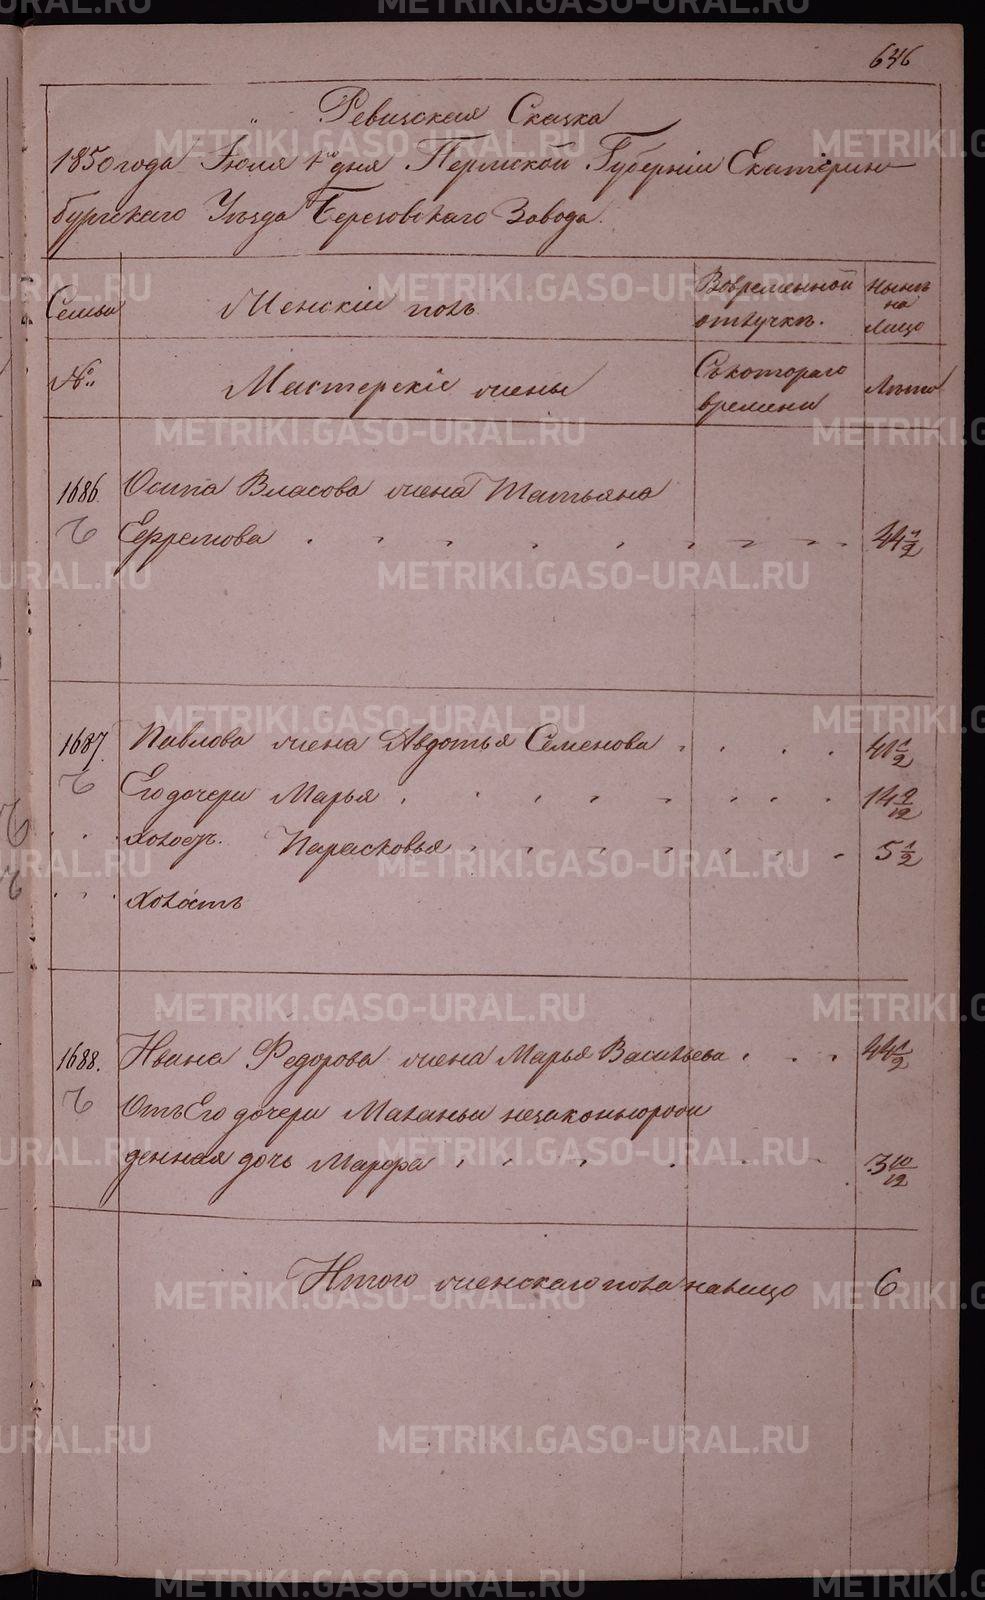 646
Ревизская Сказка
1850 года Іюля 1го дня Пермской Губерніи Екатерин
бургскаго Уѣзда Березовскаго Завода.
Семьи
Женскій полъ
Вовременной
отлучкѣ.
Нынѣ
на
лицо
№:
Мастерскіе жены
Съкотораго
времени
Лѣта
1686. Осипа Власова жена Татьяна
Ефремова 44 1/2
1687. Павлова жена Авдотья Семенова 41 1/2
Его дочери Марья 14 9/12
холостъ. Парасковья 5 1/2
холостъ
1688. Ивана Федорова жена Марья Васильева 44 1/2
Отъ Его дочери Маланьи незаконнорож
денная дочь Марфа 3 10/12
Итого женскаго пола налицо 6
METRIKI.GASO-URAL.RU